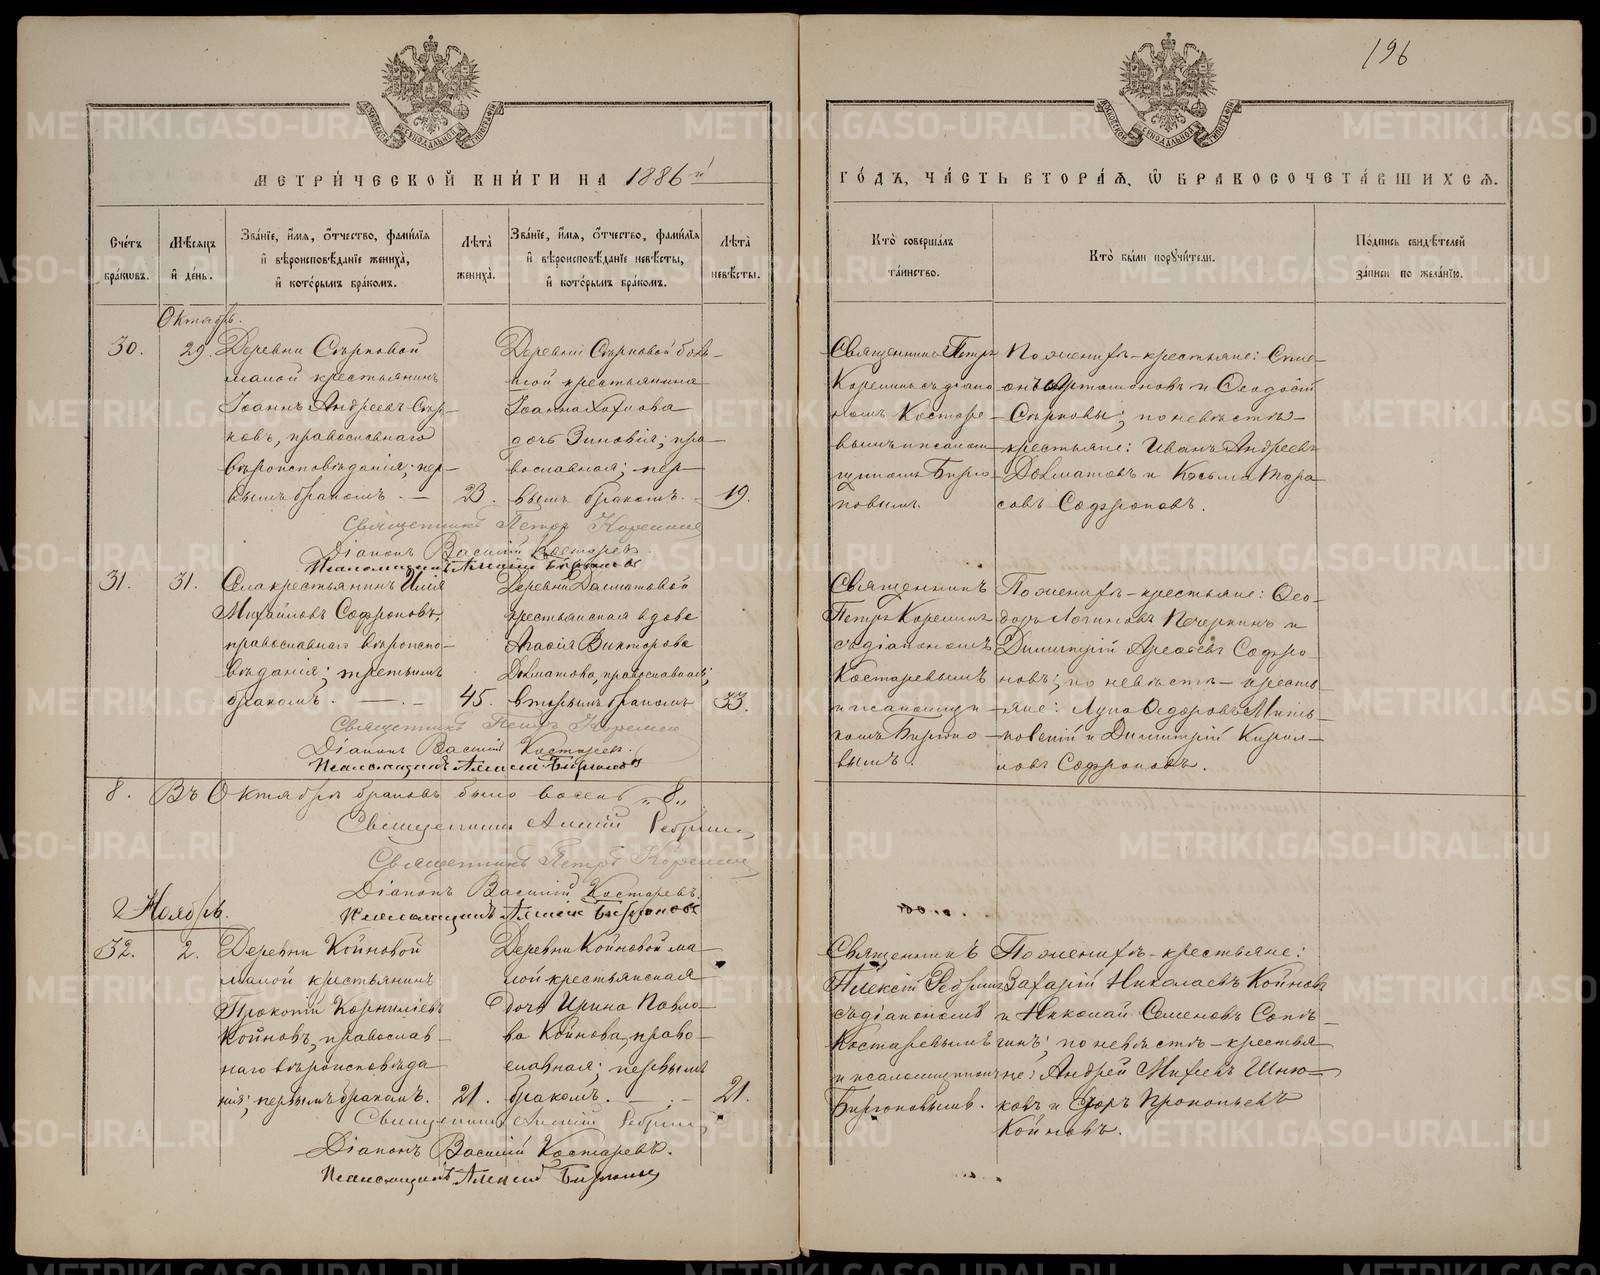 196
МЕТРИ́ЧЕСКОЙ КНИ́ГИ НА 1886й
ГО́ДЪ, ЧА́СТЬ ВТОРА́Я, Ѡ҆ БРАКОСОЧЕТА́ВШИХСЯ.
Сче́тъ бра́кѡвъ.
Мѣ́сяцъ и҆ де́нь.
Зва́нїе, и҆́мя, ѻ҆́тчество, фами́лїя и҆ вѣроисповѣ́данїе жениха̀, и҆ кото́рымъ бра́комъ.
Лѣта̀ жениха̀.
Зва́нїе, и҆́мя, ѻ҆́тчество, фами́лїя и҆ вѣроисповѣ́данїе невѣ́сты, и҆ кото́рымъ бра́комъ.
Лѣта̀ невѣ́сты.
Кто̀ соверша́лъ та́инство.
Кто̀ бы́ли порꙋчи́тели.
По́дпись свидѣ́телей за́писи по жела́нїю.
Октябрь.
30.
29.
Деревни Сѣрковой
малой крестьянинъ
Іоаннъ Андреевъ Сѣр-
ковъ, православнаго
вѣроисповѣданія; пер-
вымъ бракомъ. —
23.
Деревни Сѣрковой боль-
шой крестьянина
Іоанна
дочь Зиновія; пра-
вославная; пер-
вымъ бракомъ. —
19.
Священникъ Петръ
Корелинъ съ діако
номъ Костаре-
вымъ и псалом-
щикомъ Бирю-
ковымъ.
По женихѣ – крестьяне: Сѵме-
онъ Артамоновъ и Ѳеодосій
Сѣрковы; по невѣстѣ –
крестьяне: Иванъ Андреевъ
Долматовъ и Козьма Тара
совъ Софроновъ.
Священникъ Петръ Корелинъ
Діаконъ Василій Костаревъ.
Псаломщикъ Алексій Бирюковъ
31.
31.
Села крестьянинъ Илія
Михайловъ Софроновъ,
православнаго вѣроиспо-
вѣданія; третьимъ
бракомъ. — . —
45.
Деревни Далматовой
крестьянская вдова
Агаѳія Викторова
Долматова, православная;
вторымъ бракомъ
33.
Священникъ
Петръ Корелинъ
съ діакономъ
Костаревымъ
и псаломщи
комъ Бирюко
вымъ.
По женихѣ – крестьяне: Ѳео-
доръ Логиновъ Печеркинъ и
Димитрій Софро
новъ; по невѣстѣ – кресть-
яне: Лука Ѳедоровъ Мить-
ковскій и Димитрій Кирил-
ловъ Софроновъ.
Священникъ Петръ Корелинъ
Діаконъ Василій Костаревъ.
Псаломщикъ Алексій Бирюковъ
8.
Въ Октябрѣ браковъ было восемь „8„
Священникъ Алексій
Священникъ Петръ Корелинъ
Діаконъ Василій Костаревъ.
Псаломщикъ Алексій Бирюковъ
Ноябрь.
32.
2.
Деревни Койновой
малой крестьянинъ
Прокопій Корниліевъ
Койновъ, православ-
наго вѣроисповѣда
нія; первымъ бракомъ.
21.
Деревни Койновой ма-
лой крестьянская
дочь Ирина Павло-
ва Койнова, право-
славная; первымъ
бракомъ. — . —
21.
Священникъ
Алексій
съ діакономъ
Костаревымъ
и псаломщикомъ
Бирюковымъ.
По женихѣ – крестьяне:
Захарій Николаевъ Койновъ
и Николай Семеновъ Сапѣ-
гинъ; по невѣстѣ – крестья
не: Андрей Михеевъ Шню-
ковъ и Егоръ Прокопьевъ
Койновъ.
Священникъ Алексій
Діаконъ Василій Костаревъ.
Псаломщикъ Алексій Бирюковъ
METRIKI.GASO-URAL.RU